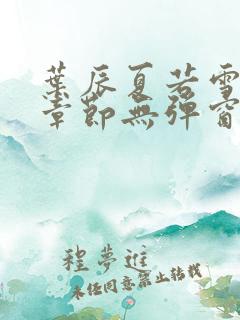 葉辰夏若雪
章節無彈窗
程夢進
未經同意禁止轉載